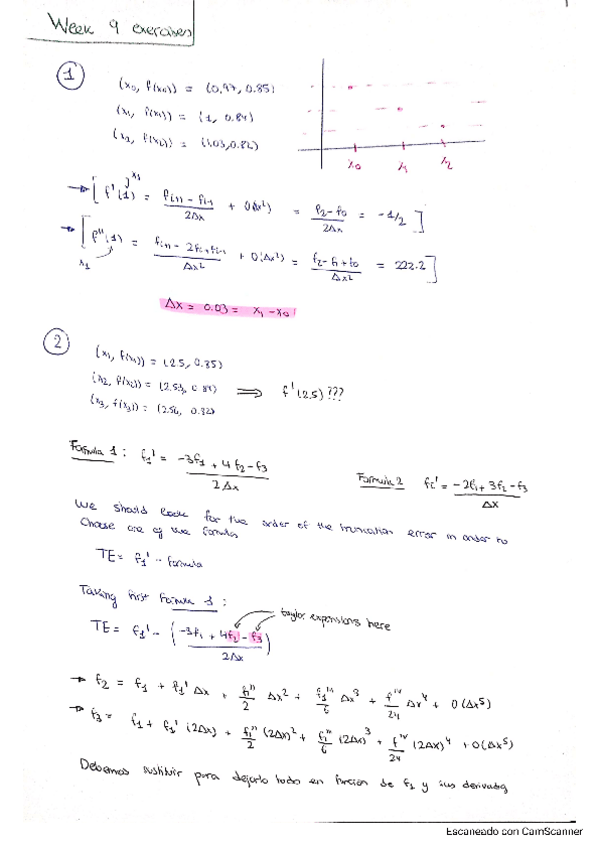 Week 9 exercises
1
(x0, f(x0)) = (0.97, 0.85)
(x1, f(x1)) = (1, 0.84)
(x2, f(x2)) = (1.03, 0.82)
x0 x1 x2
→ [f'(1) = (fi+1 - fi-1)/(2Δx) + O(Δx²) = (f2 - f0)/(2Δx) = -1/2]
x1
→ [f''(1) = (fi+1 - 2fi + fi-1)/(Δx²) + O(Δx²) = (f2 - f1 + f0)/(Δx²) = 222.2]
x1
Δx = 0.03 = x1 - x0
2
(x1, f(x1)) = (2.5, 0.85)
(x2, f(x2)) = (2.53, 0.84) ⟹ f'(2.5)???
(x3, f(x3)) = (2.56, 0.82)
Formula 1: f1' = (-3f1 + 4f2 - f3)/(2Δx)
Formula 2 f1' = (-2f1 + 3f2 - f3)/(Δx)
We should look for the order of the truncation error in order to
choose one of the formulas
TE = f1' - formula
Taking first Formula 1:
taylor expansions here
TE = f1' - ((-3f1 + 4f2 - f3)/(2Δx))
→ f2 = f1 + f1'Δx + f1''/2 Δx² + f1'''/6 Δx³ + f^IV/24 Δx⁴ + O(Δx⁵)
→ f3 = f1 + f1'(2Δx) + f1''/2 (2Δx)² + f1'''/6 (2Δx)³ + f^IV/24 (2Δx)⁴ + O(Δx⁵)
Debemos sustituir para dejarlo todo en función de f1 y sus derivadas
Escaneado con CamScanner